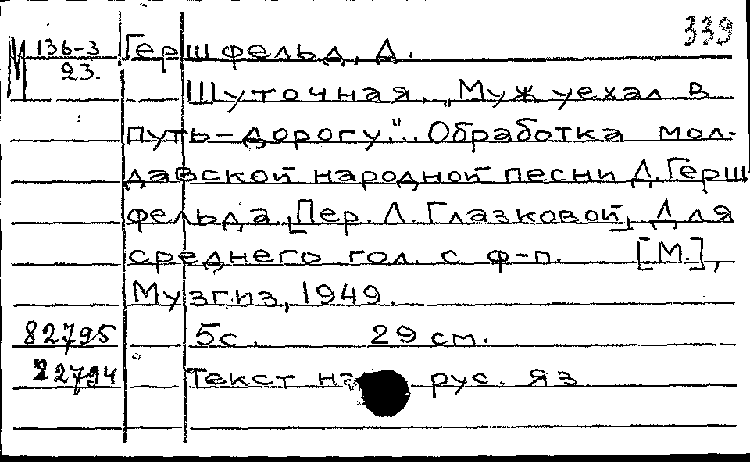 339
М 136-3 Гершфельд, Д.
23.
Шуточная. „Муж уехал в
путь-дорогу". Обработка мол-
давской народной песни Д. Герш
фельда [Пер. Л. Глазковой]. Для
среднего гол. с ф-п. [М.],
Музгиз, 1949.
82795 5с. 29 см.
22794 Текст на рус. яз